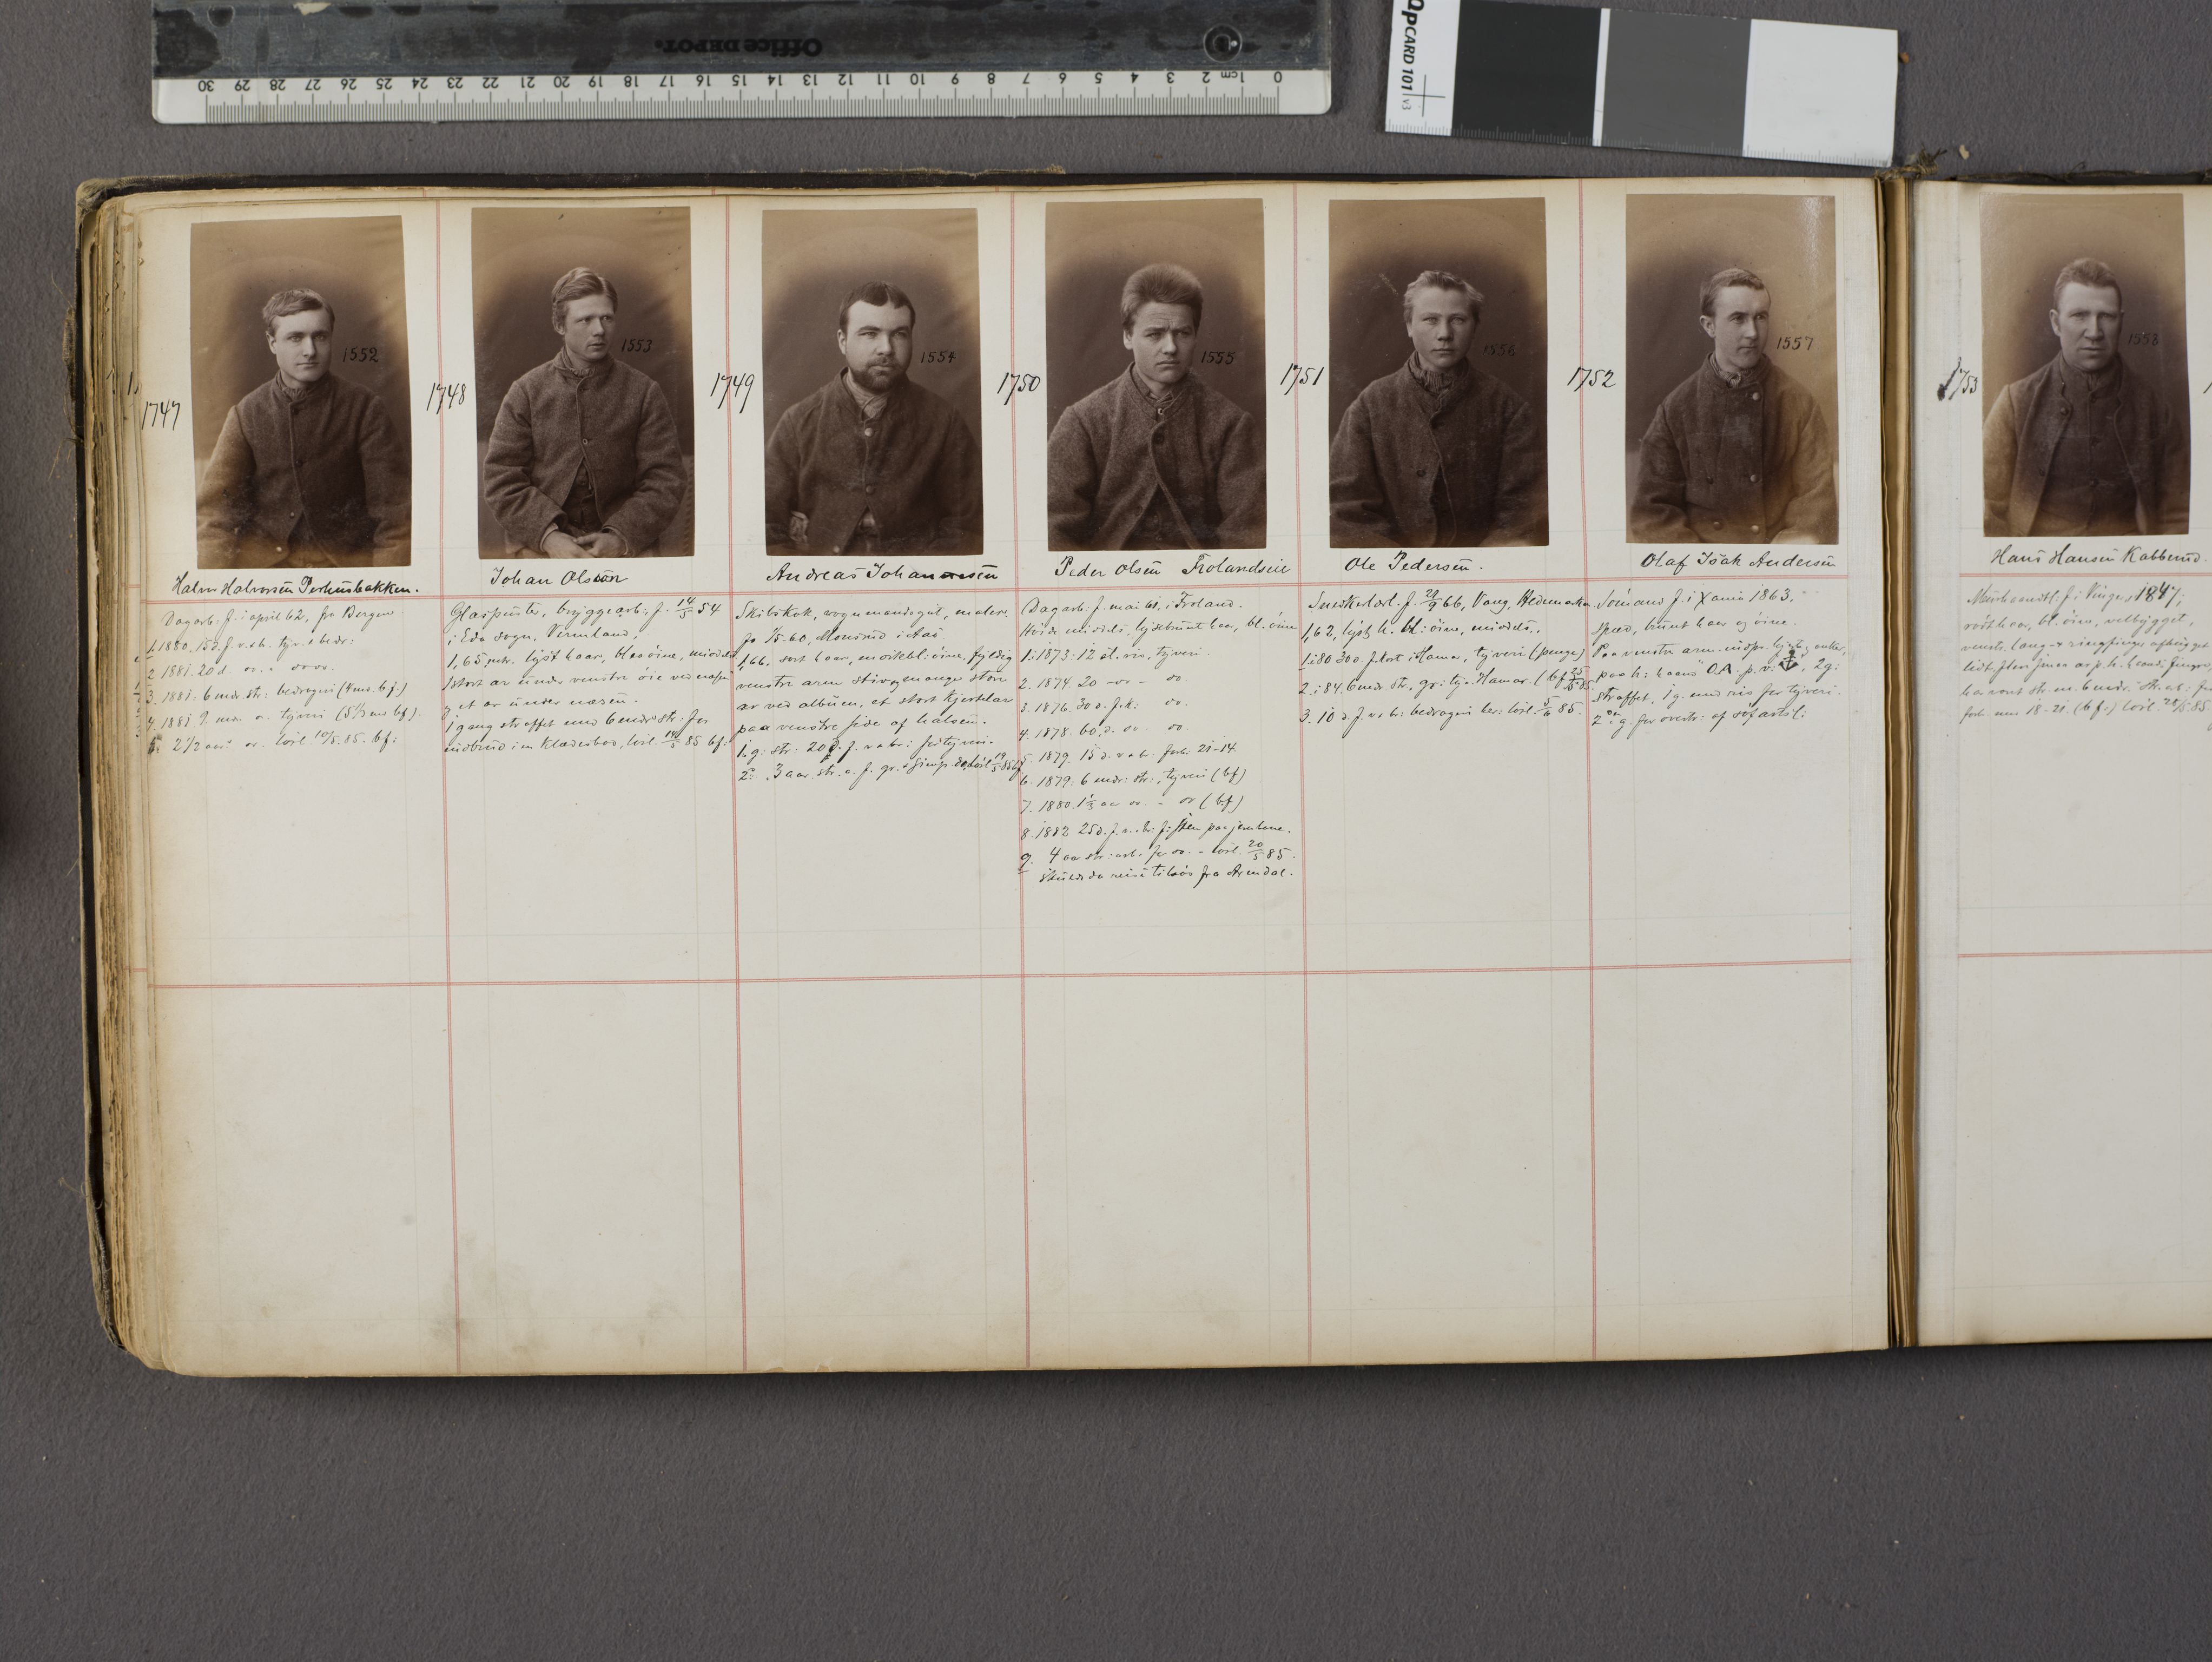 Office DEPOT.
0 1cm 2 3 4 5 6 7 8 9 10 11 12 13 14 15 16 17 18 19 20 21 22 23 24 25 26 27 28 29 30
QPCARD 101 v3
1747
1552
Halvor Halvorsen Perhusbakken.
Dagarb. f. i april 62, fra Bergen
1. 1880. 15 d. f. v. & b. tyv. & bedr:
2 1881. 20 d. oo. "
3. 1881. 6 mdr. str: bedrageri (4 md. bf.)
4. 1881 9 mdr. o. tyveri (5 1/3 md bf).
5: 2 1/2 aar oo. løsl. 10/5. 85. bf:
1748
1553
Johan Olsson
Glaspuster, bryggearb., f. 14/5 54
i Eda sogn, Vermland,
1,65 mtr. lyst haar, blaa øine, middels
1 stort ar under venstre øie ved næsen
og et ar under næsen.
1 gang straffet med 6 mdr. str: for
indbrud i en Klædesbod, løsl. 18/5 85 bf:
1749
1554
Andreas Johannesen
Skibskok, vognmandsgut, maler.
fø 1/5 60, Mosund i Aas
1,66, sort haar, mørkebl: øine, fyldig
venstre arm stiv og mange store
ar ved albuen, et stort kjertelar
paa venstre side af halsen.
1. g: str: 20 d. f. v & br: for tyveri.
2. 3 aar. str. a. f. gr. & simp. løsl 19/5 85
1750
1555
Peder Olsen Frolandseie
Dagarb: f. mai 61, i Froland.
Hvide middels, lysebrunt haar, bl. øine
1: 1873: 12 sl. ris, tyveri.
2. 1874. 20 - oo - oo.
3. 1876. 30 d. f. k: oo.
4. 1878. 60 d. oo oo.
5. 1879. 15 d. v & br: forb. 21-14
6. 1879: 6 mdr: str:, tyveri (bf)
7. 1880. 1 1/3 aa oo. - oo (bf)
8. 1882 25 d. f. v. & br: f: sten paa jernbane.
9. 4 aa str: arb. for oo. - løsl. 20/5 85.
skulde da reise tilsjøs fra Arendal.
1751
1556
Ole Pedersen.
Snedkerlærl. f. 29/9 66, Vang, Hedemarken
1,62, lyst h. bl: øine, middels.
1: i 80 30 d. f. kost i Hamar, tyveri (penge)
2. i 84. 6 mdr. str., gr: tyv. Hamar. (bf 25/5 85.
3. 10 d. f. v & br: bedrageri her: løsl. 5/6 85.
1752
1557
Olaf Isak Andersen
Sømand f. i Xania 1863.
Spæd, brunt haar og øine.
Paa venstre arm indpr. hjerte, anker,
paa h: haand O A. p. v: ⚓, 2 g:
straffet, 1 g. med ris for tyveri.
2den g. for overtr: af søfartsl:
1753
1558
Hans Hansen Kabberud.
f. i Vinger 1847,
rødt haar, bl. øine, velbygget,
venstre lang- & ringfinger afhugget
har været str. m. 6 mdr. str. arb: for
forb. mm 18-21. (bf.) løsl. 28/5 85